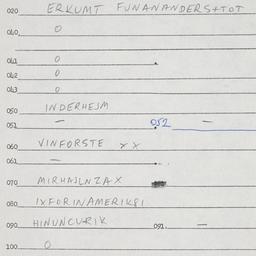 020 ERKUMT FUNANANDERS+TOT
040 0
041 0
042 0
043 0
050 INDERHEJM
051 — 052 —
060 VINFORSTE XX
061 —
070 MIRHAJLNZAX
080 IXFORINAMERIK81
090 HINUNCURIK 091. —
100 0